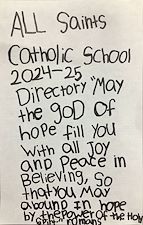 ALL Saints
Catholic School
2024-25
Directory "May
the goD of
hope fill you
with all Joy
and Peace in
Believing, So
that you May
abound In hope
by the power of the Holy
spirit" romans